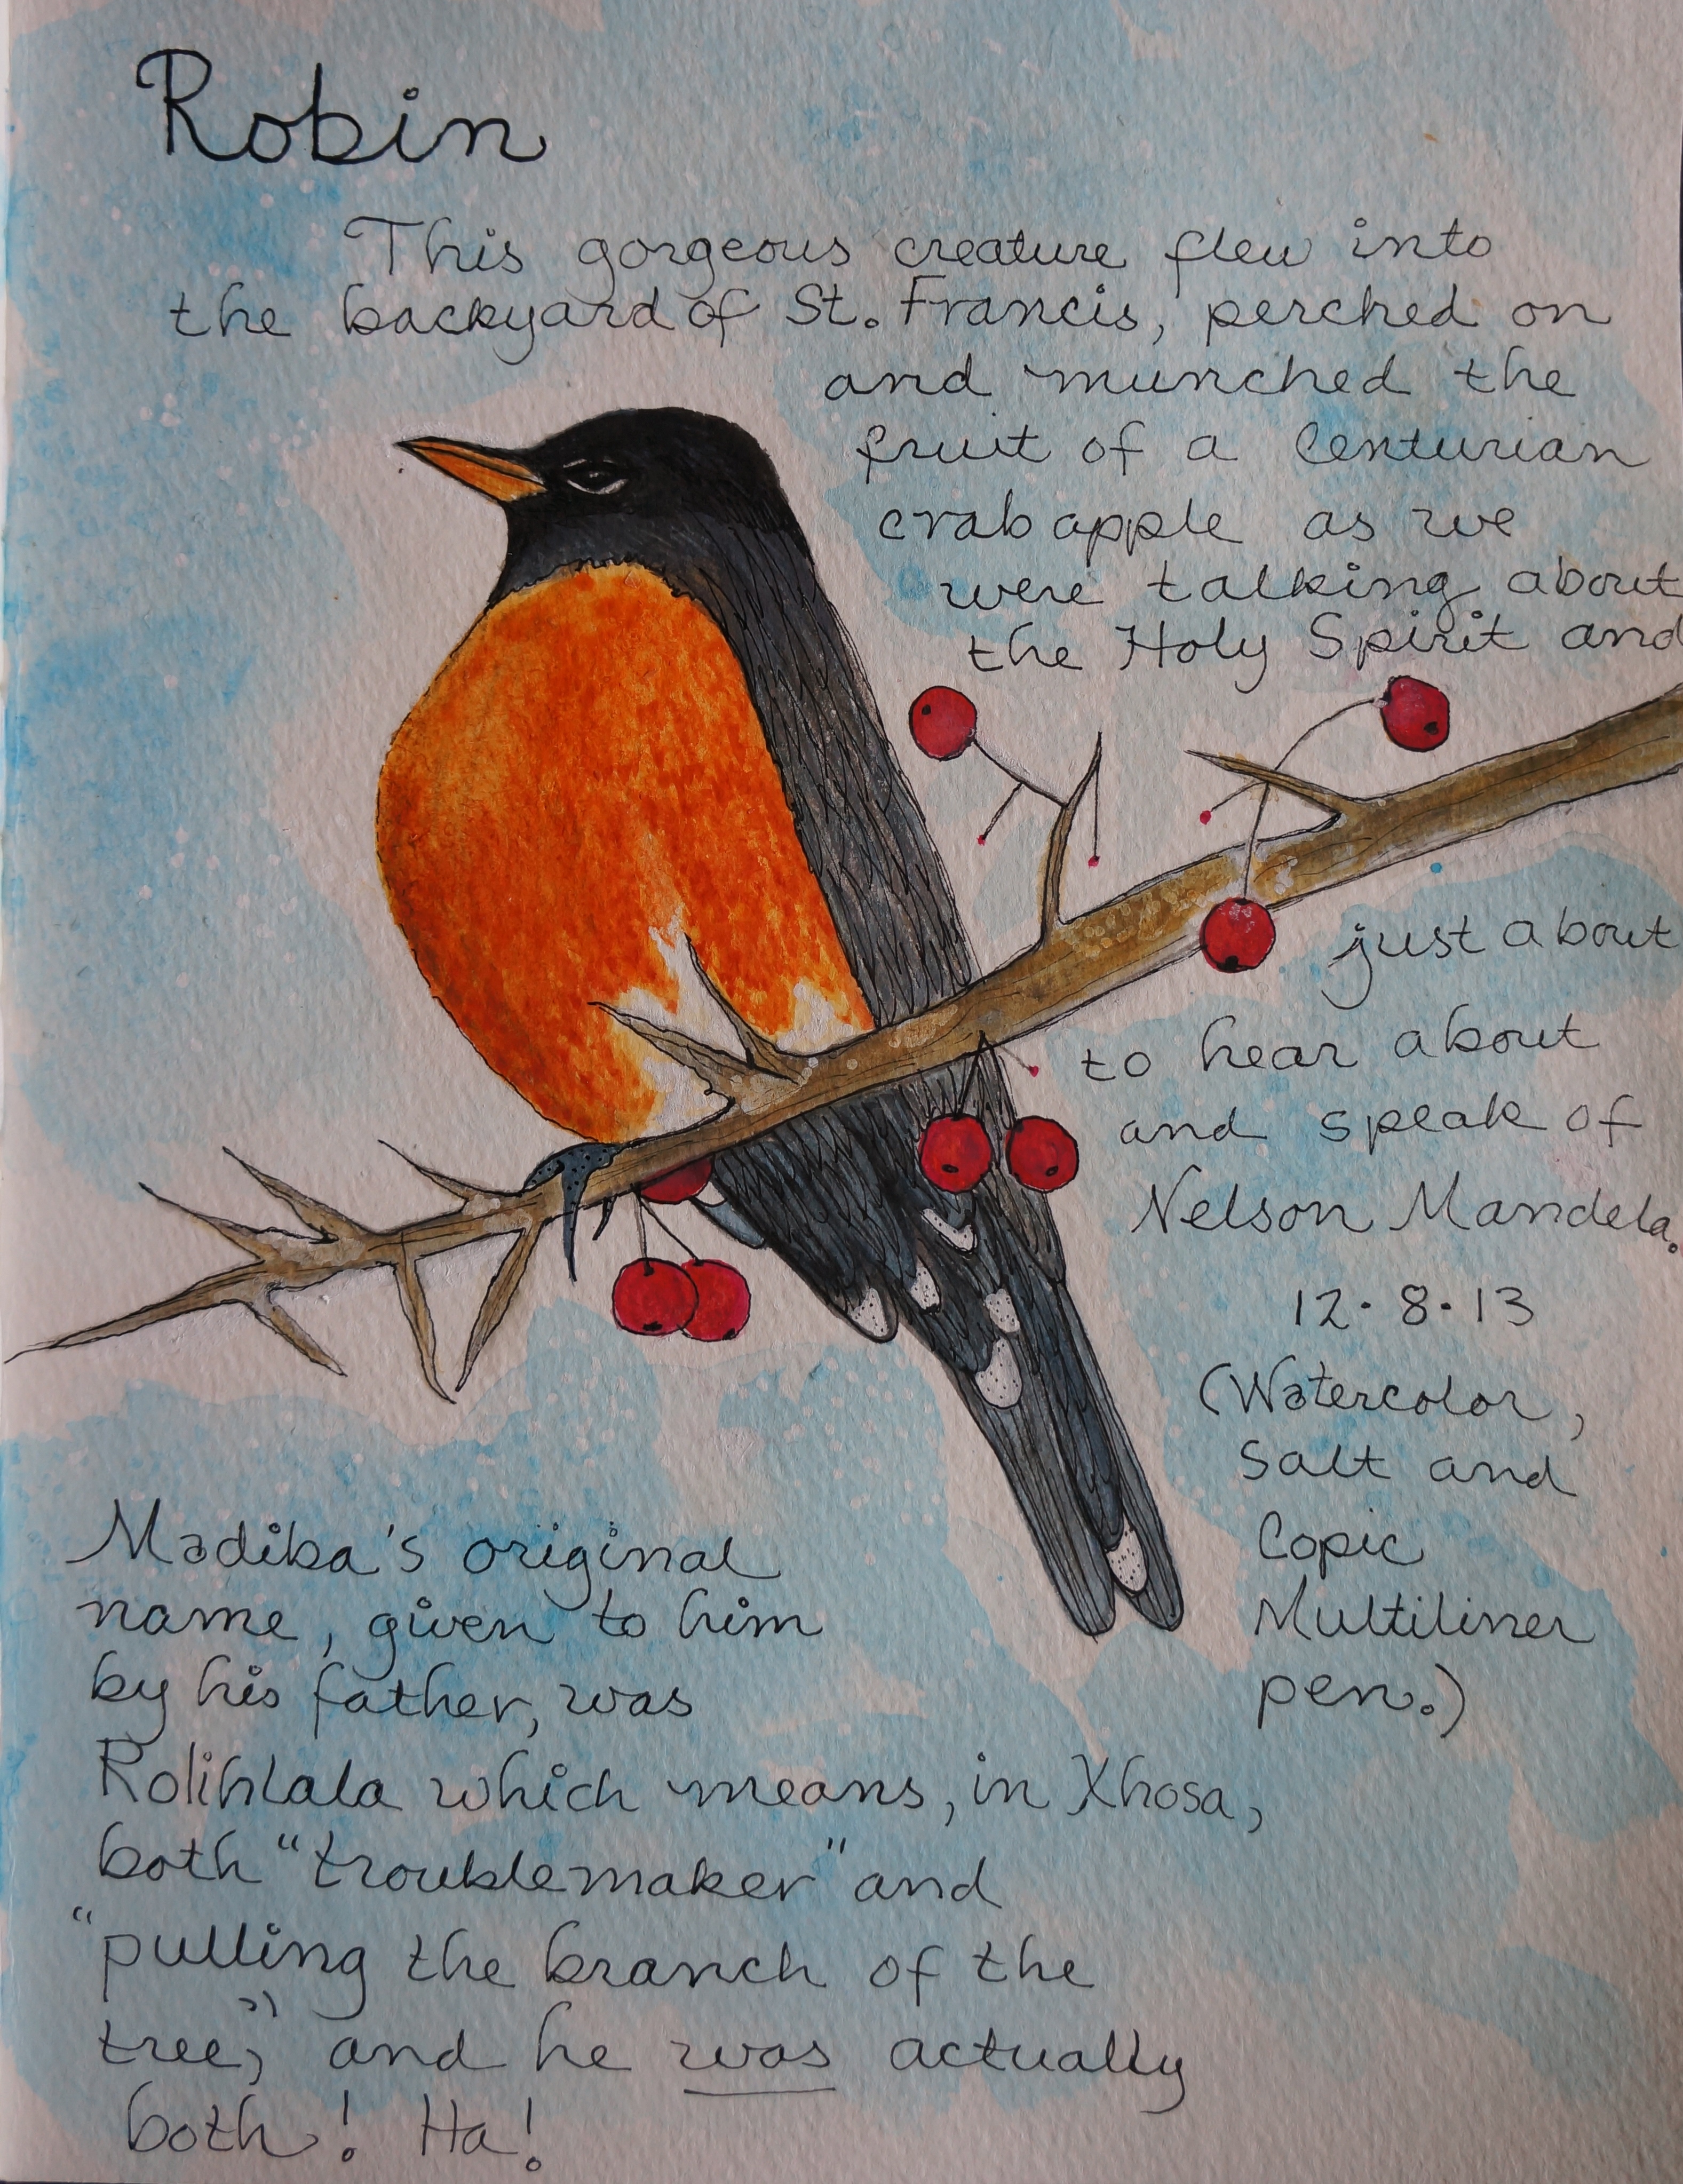 Robin
This gorgeous creature flew into
the backyard of St. Francis, perched on
and munched the
fruit of a Centurian
crab apple as we
were talking about
the Holy Spirit and
just about
to hear about
and speak of
Nelson Mandela.
12·8·13
(Watercolor,
Salt and
Copic
Multiliner
pen.)
Madiba's original
name, given to him
by his father, was
Rolihlala which means, in Xhosa,
both "troublemaker" and
"pulling the branch of the
tree," and he was actually
both! Ha!